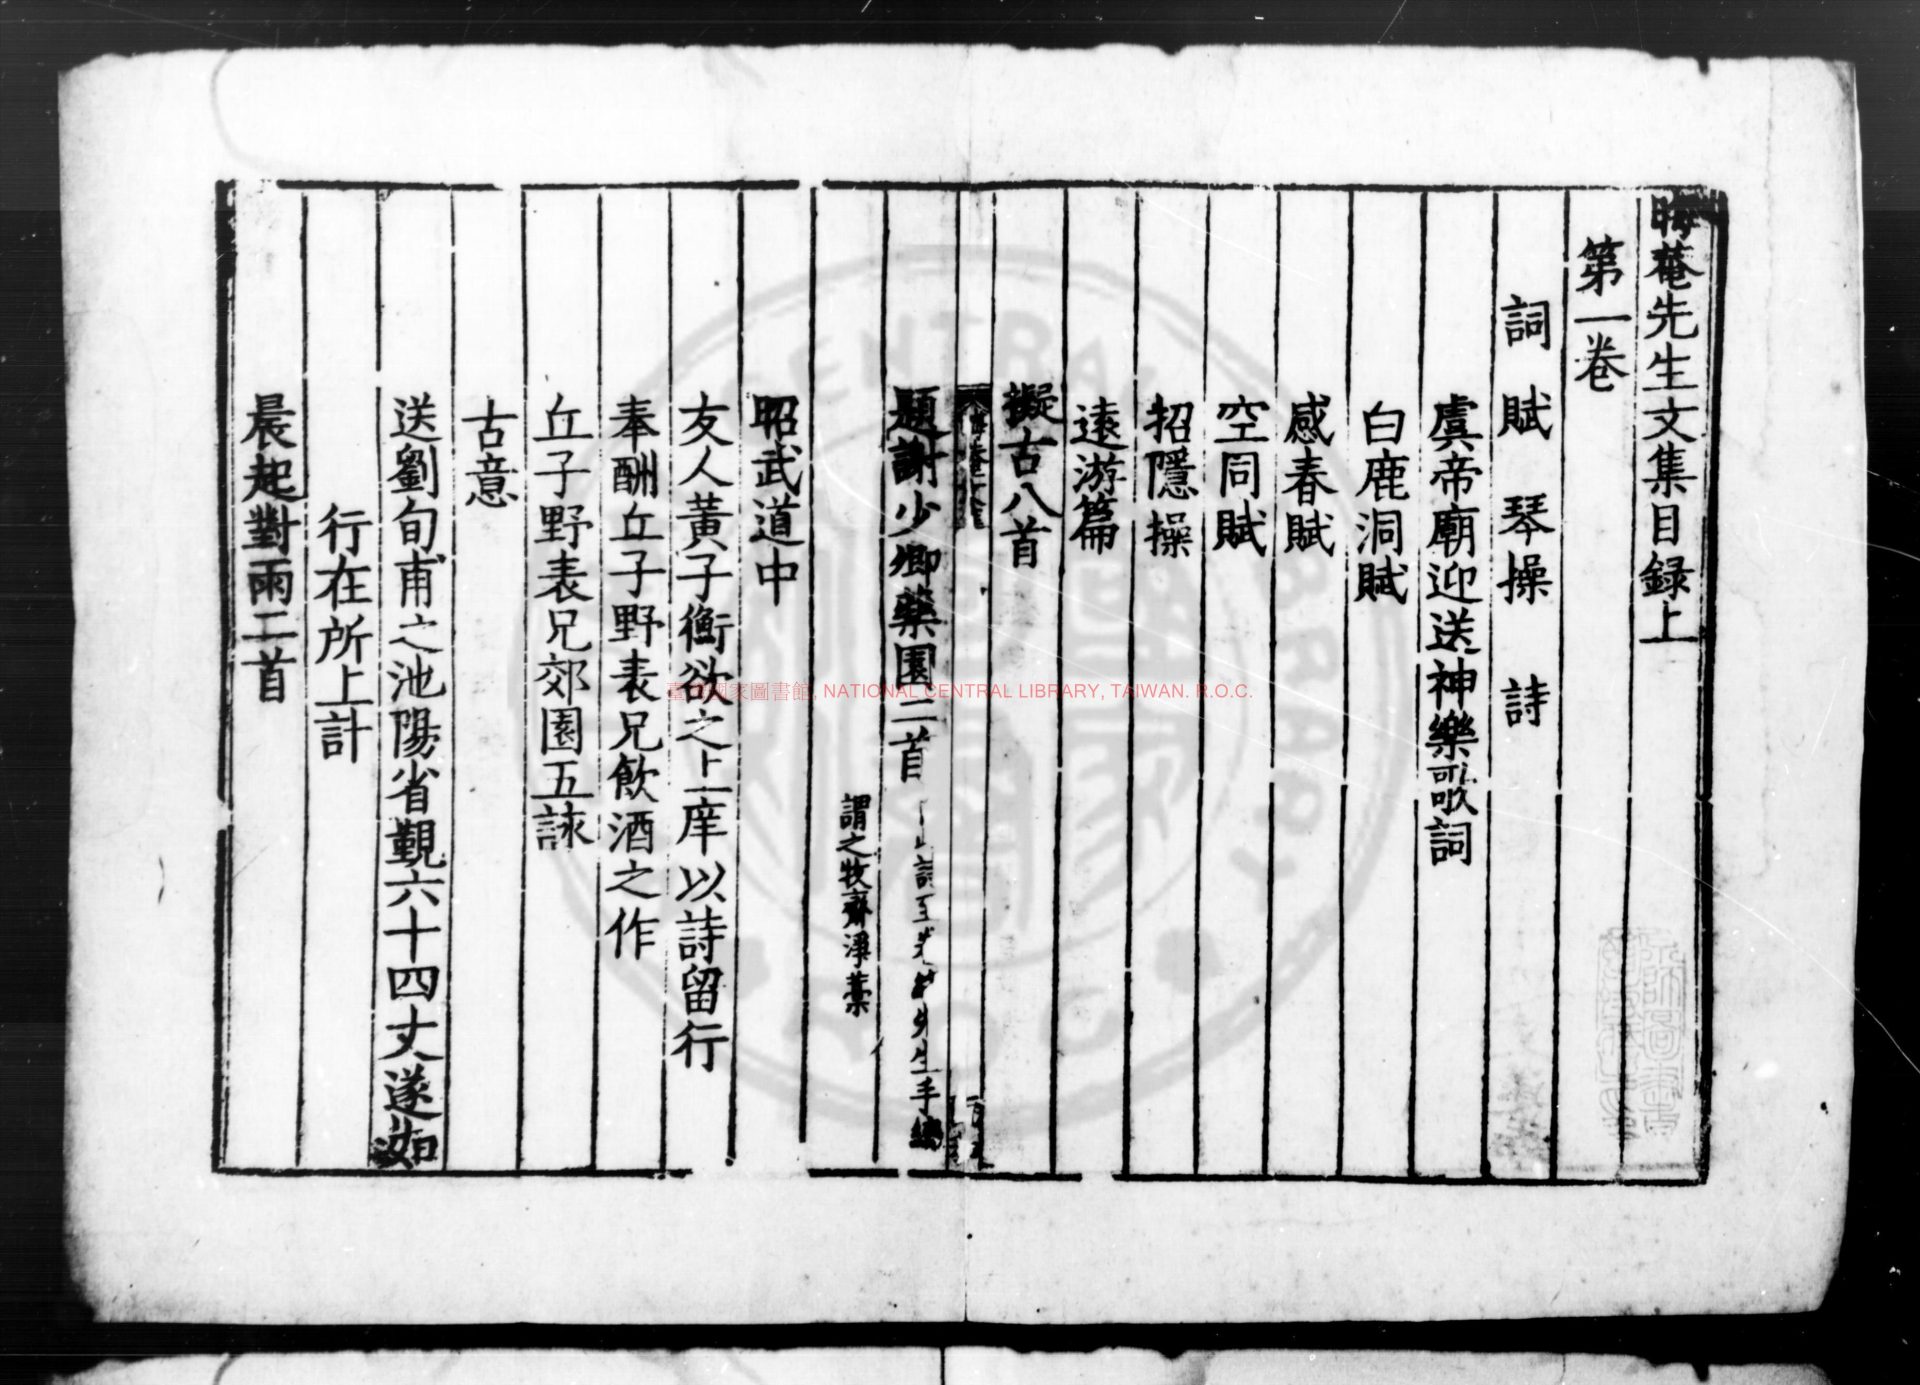 晦菴先生文集目録上
第一卷
詞 賦 琴操 詩
虞帝廟迎送神樂歌詞
白鹿洞賦
感春賦
空同賦
招隱操
遠游篇
擬古八首
題謝少卿藥園二首 詩至 先生手編
謂之牧齋淨藁
昭武道中
友人黃子衡欲之上庠以詩留行
奉酬丘子野表兄飲酒之作
丘子野表兄郊園五詠
古意
送劉旬甫之池陽省覲六十四丈遂如
行在所上計
晨起對雨二首
臺灣國家圖書館, NATIONAL CENTRAL LIBRARY, TAIWAN. R.O.C.